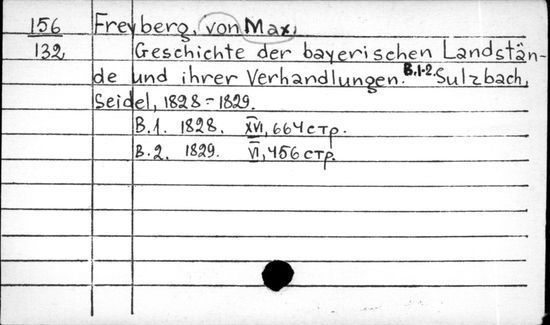 156 Freyberg, von Max,
132 Geschichte der bayerischen Landstän-
de und ihrer Verhandlungen. B.1-2. Sulzbach,
Seidel, 1828-1829.
B.1. 1828. XVI, 664 стр.
B.2. 1829. VI, 456 стр.